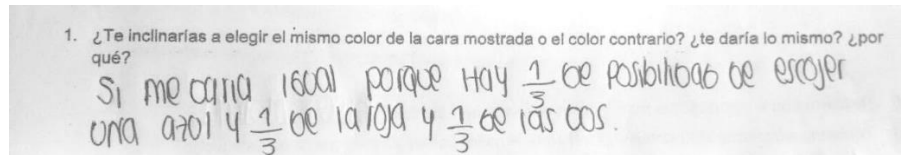 1. ¿Te inclinarías a elegir el mismo color de la cara mostrada o el color contrario? ¿te daría lo mismo? ¿por
qué?
Si me daria igual porque Hay 1/3 de posibilidad de escojer
una azol y 1/3 de la roja y 1/3 de las dos.